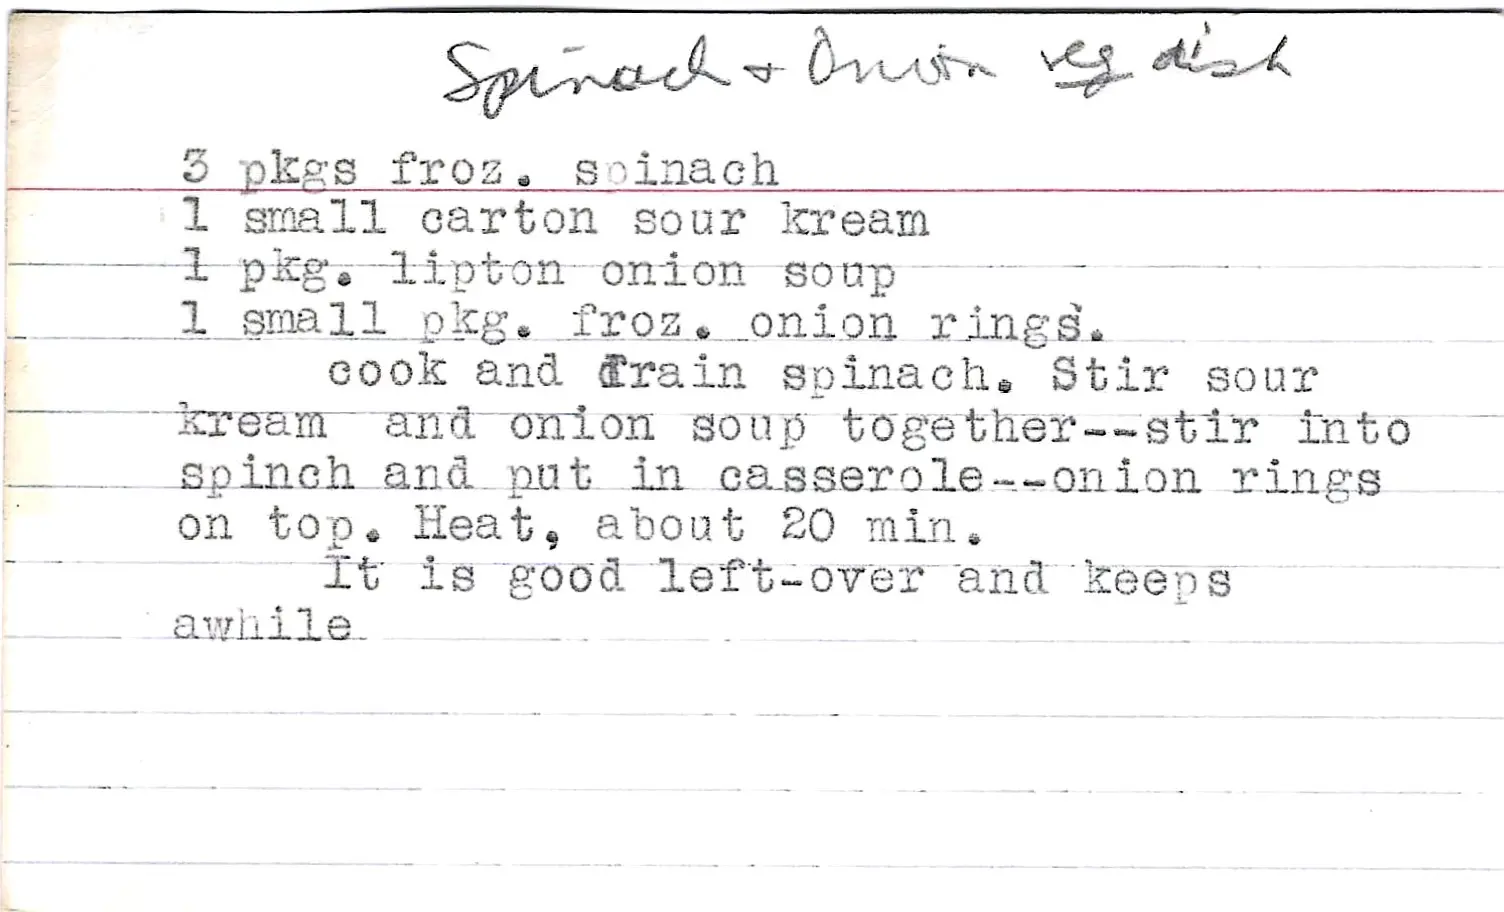 Spinach + Onion veg dish
3 pkgs froz. spinach
1 small carton sour kream
1 pkg. lipton onion soup
1 small pkg. froz. onion rings.
cook and drain spinach. Stir sour
kream and onion soup together--stir into
spinch and put in casserole--onion rings
on top. Heat, about 20 min.
It is good left-over and keeps
awhile